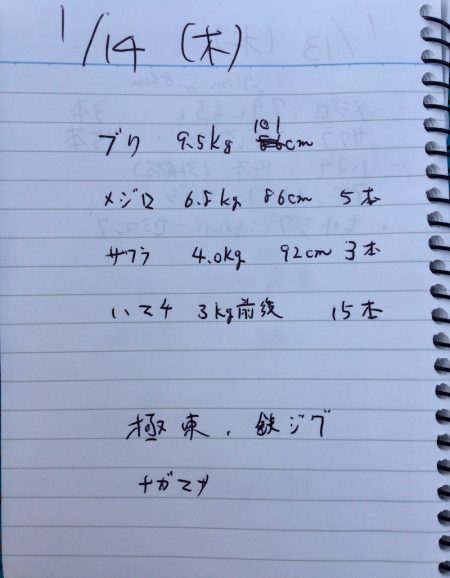 1/14 (木)
ブリ 9.5kg 101cm
メジロ 6.8kg 86cm 5本
サワラ 4.0kg 92cm 3本
ハマチ 3kg前後 15本
極東、鉄ジグ
ナガマサ